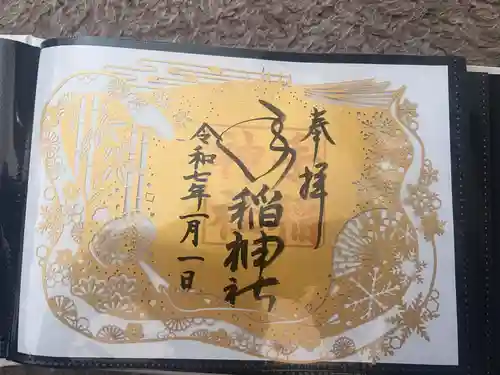 奉拝
手稲神社
令和七年一月一日